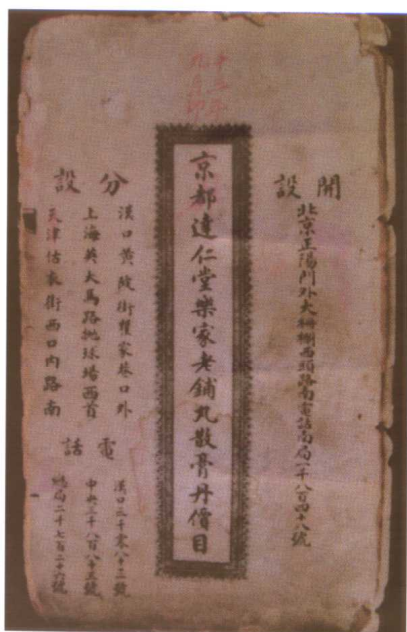 開設
北京正陽門外大柵欄西頭路南電話南局一千八百四十八號
京都達仁堂樂家老鋪丸散膏丹價目
分設
漢口黄陂街瞿家巷口外
上海英大馬路抛球場西首
天津估衣街西口内路南
電話
漢口三千零八十二號
中央三千八百八十三號
總局二千七百二十六號